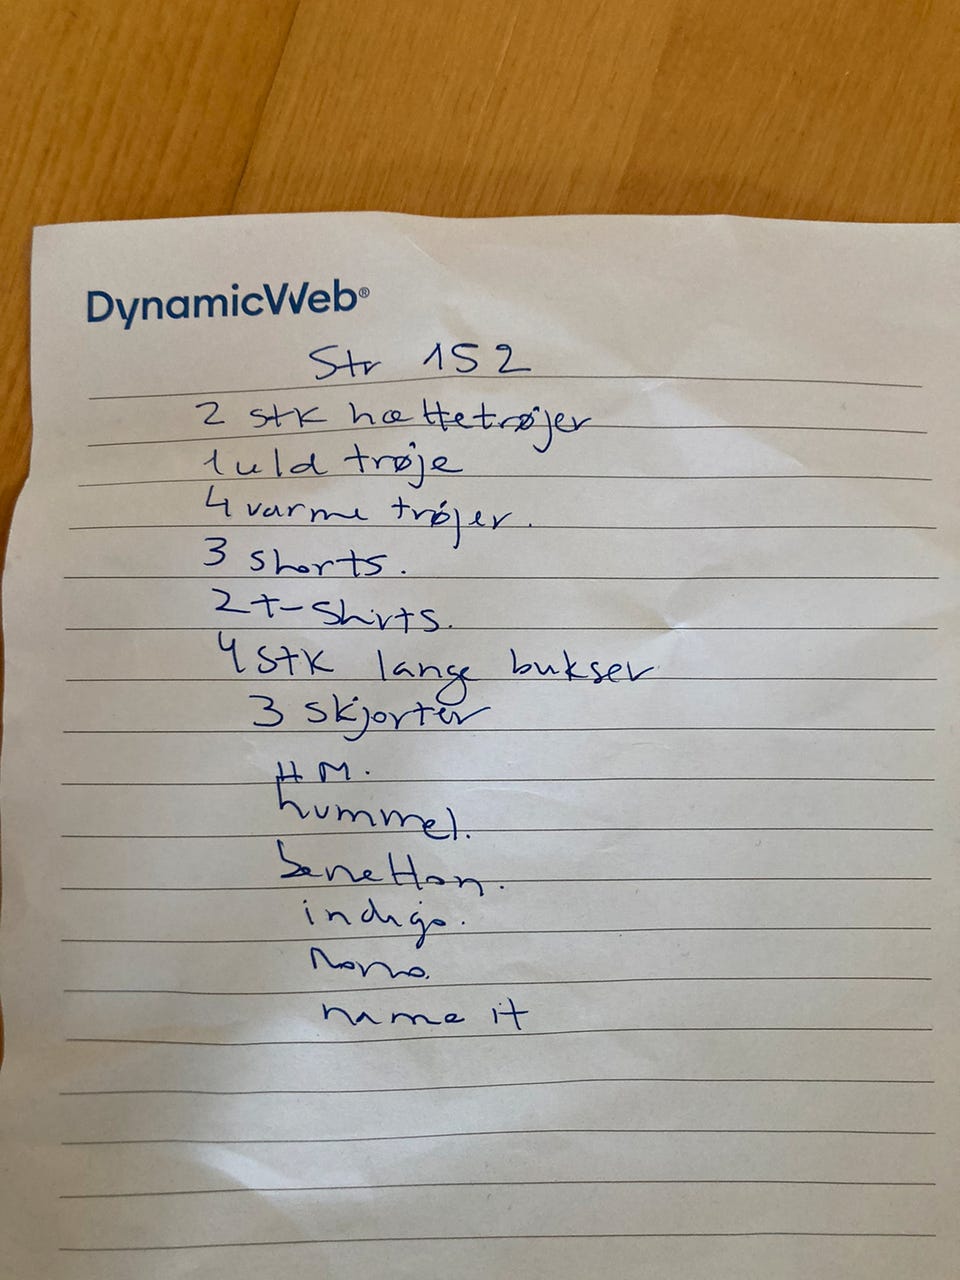 DynamicWeb®
Str 152
2 stk hættetrøjer
1 uld trøje
4 varme trøjer.
3 shorts.
2 t-shirts.
4 stk lange bukser
3 skjorter
HM.
hummel.
benetton.
indigo.
name it